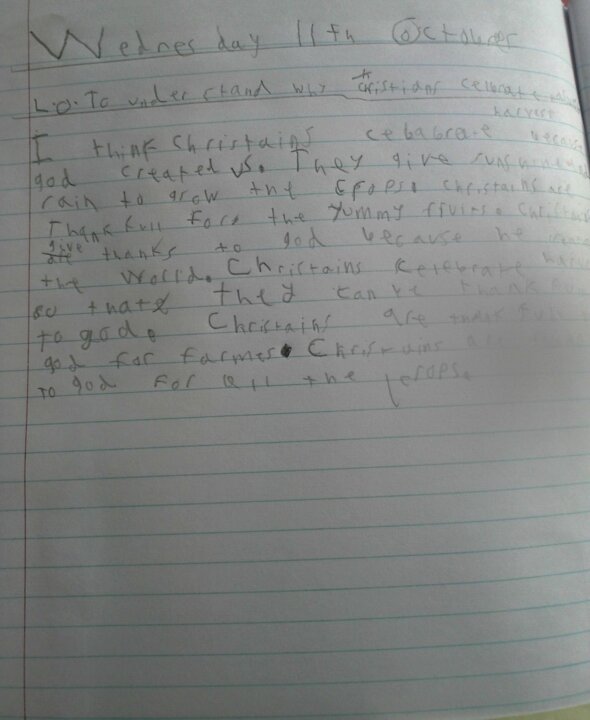 Wednesday 11th October
L.O. To understand why christians celebrate
harvest
I think christains cebabrate because
god created us. They give sunshine
rain to grow the cropes. christains are
Thankfull force the yummy
give thanks to god because he
the world. Christains celebrate
so that they can be thank
to god. Christains are thank full
god for farmes. Christains
To god for all the cropse.